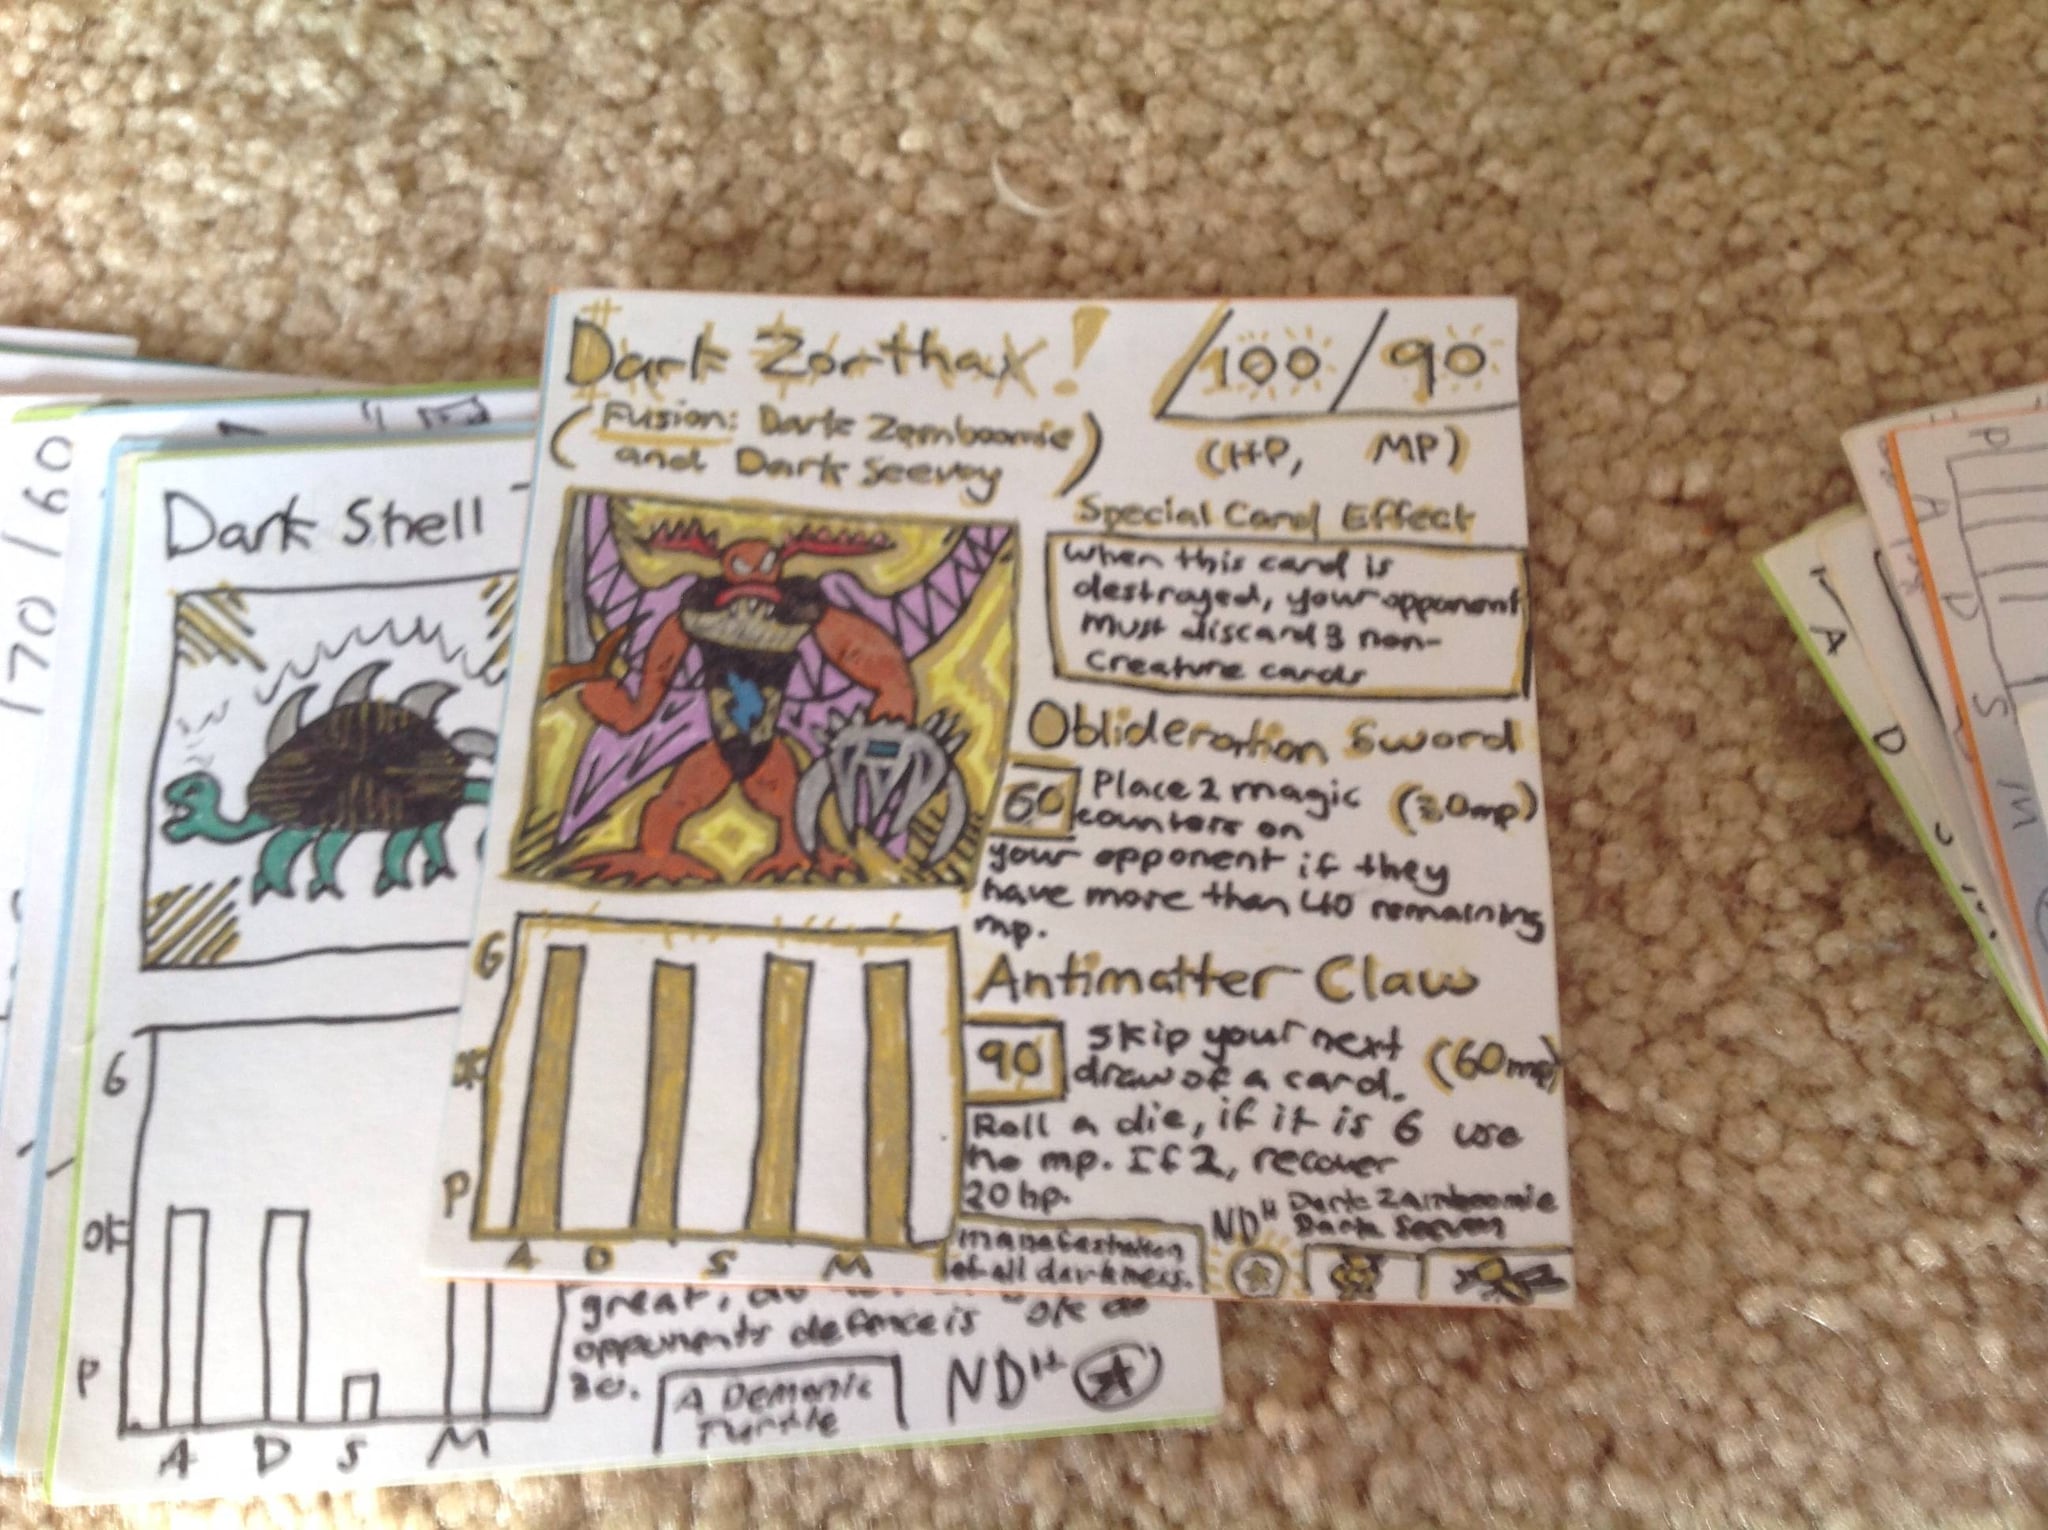 Dark Zorthax!
/100/90
(Fusion: Dark Zamboomie
and Dark Seevoy)
(HP, MP)
Special Card Effect
When this card is
destroyed, your opponent
must discard 3 non-
creature cards
Oblideration Sword
60 Place 2 magic (30mp)
counters on
your opponent if they
have more than 40 remaining
mp.
Antimatter Claw
90 Skip your next (60mp)
draw of a card.
Roll a die, if it is 6 use
no mp. If 2, recover
20 hp.
G
OK
P
A D S M
manafestation
of all darkness.
ND" Dark Zamboomie
Dark Seevoy
170/60
Dark Shell
G
OK
P
A D S M
great,
opponents defence is ok do
20.
A Demonic
Turtle
ND"
A
D
P
A
D
S
M